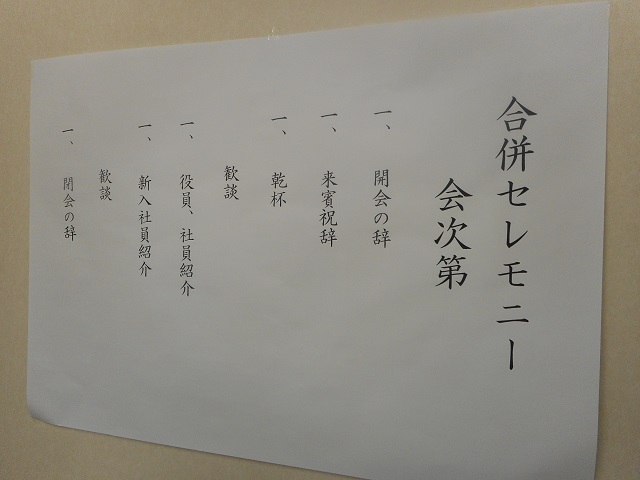 合併セレモニー
会次第
一、開会の辞
一、来賓祝辞
一、乾杯
歓談
一、役員、社員紹介
一、新入社員紹介
歓談
一、閉会の辞